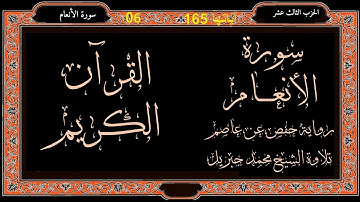 الحزب الثالث عشر
آياتها 165
06
سورة الأنعام
سورة
الأنعام
رواية حفص عن عاصم
تلاوة الشيخ محمد جبريل
القرآن
الكريم